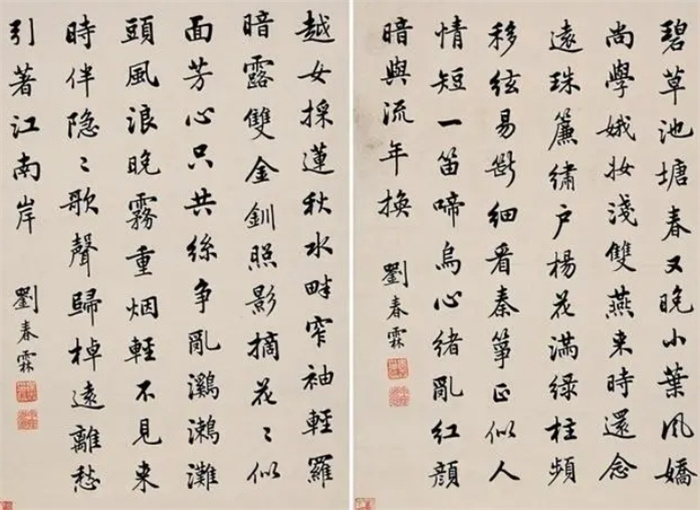 碧草池塘春又晚小葉風嬌
尚學娥妝淺雙燕来時還念
遠珠簾繡户楊花滿綠柱頻
移絃易斷細看秦箏正似人
情短一笛啼烏心緒亂紅顏
暗與流年換
劉春霖
越女採蓮秋水畔窄袖輕羅
暗露雙金釧照影摘花〻似
面芳心只共絲争亂鸂鶒灘
頭風浪晚霧重烟輕不見来
時伴隐〻歌聲歸棹遠離愁
引著江南岸
劉春霖